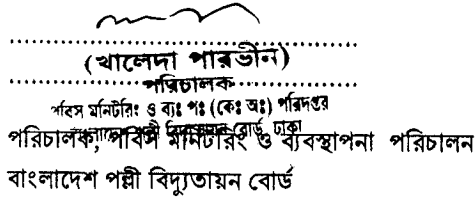 (খালেদা পারভীন)
পরিচালক
পবিস মনিটরিং ও ব্যঃ পঃ (কেঃ অঃ) পরিদপ্তর
বাংলাদেশ পল্লী বিদ্যুতায়ন বোর্ড, ঢাকা
পরিচালক, পবিস মনিটরিং ও ব্যবস্থাপনা পরিচালন
বাংলাদেশ পল্লী বিদ্যুতায়ন বোর্ড